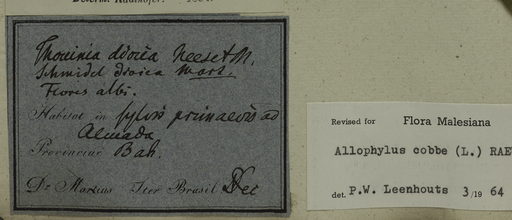 Determ. Radlkofer.
Thouinia dioica Nees et M.
Schmidel dioica Mart.
Flores albi.
Habitat in sylvis primaevis ad
Almada
Provinciae Bah.
Dr. Martius Iter Brasil Dec
Revised for Flora Malesiana
Allophylus cobbe (L.) RAE
det. P.W. Leenhouts 3/19 64